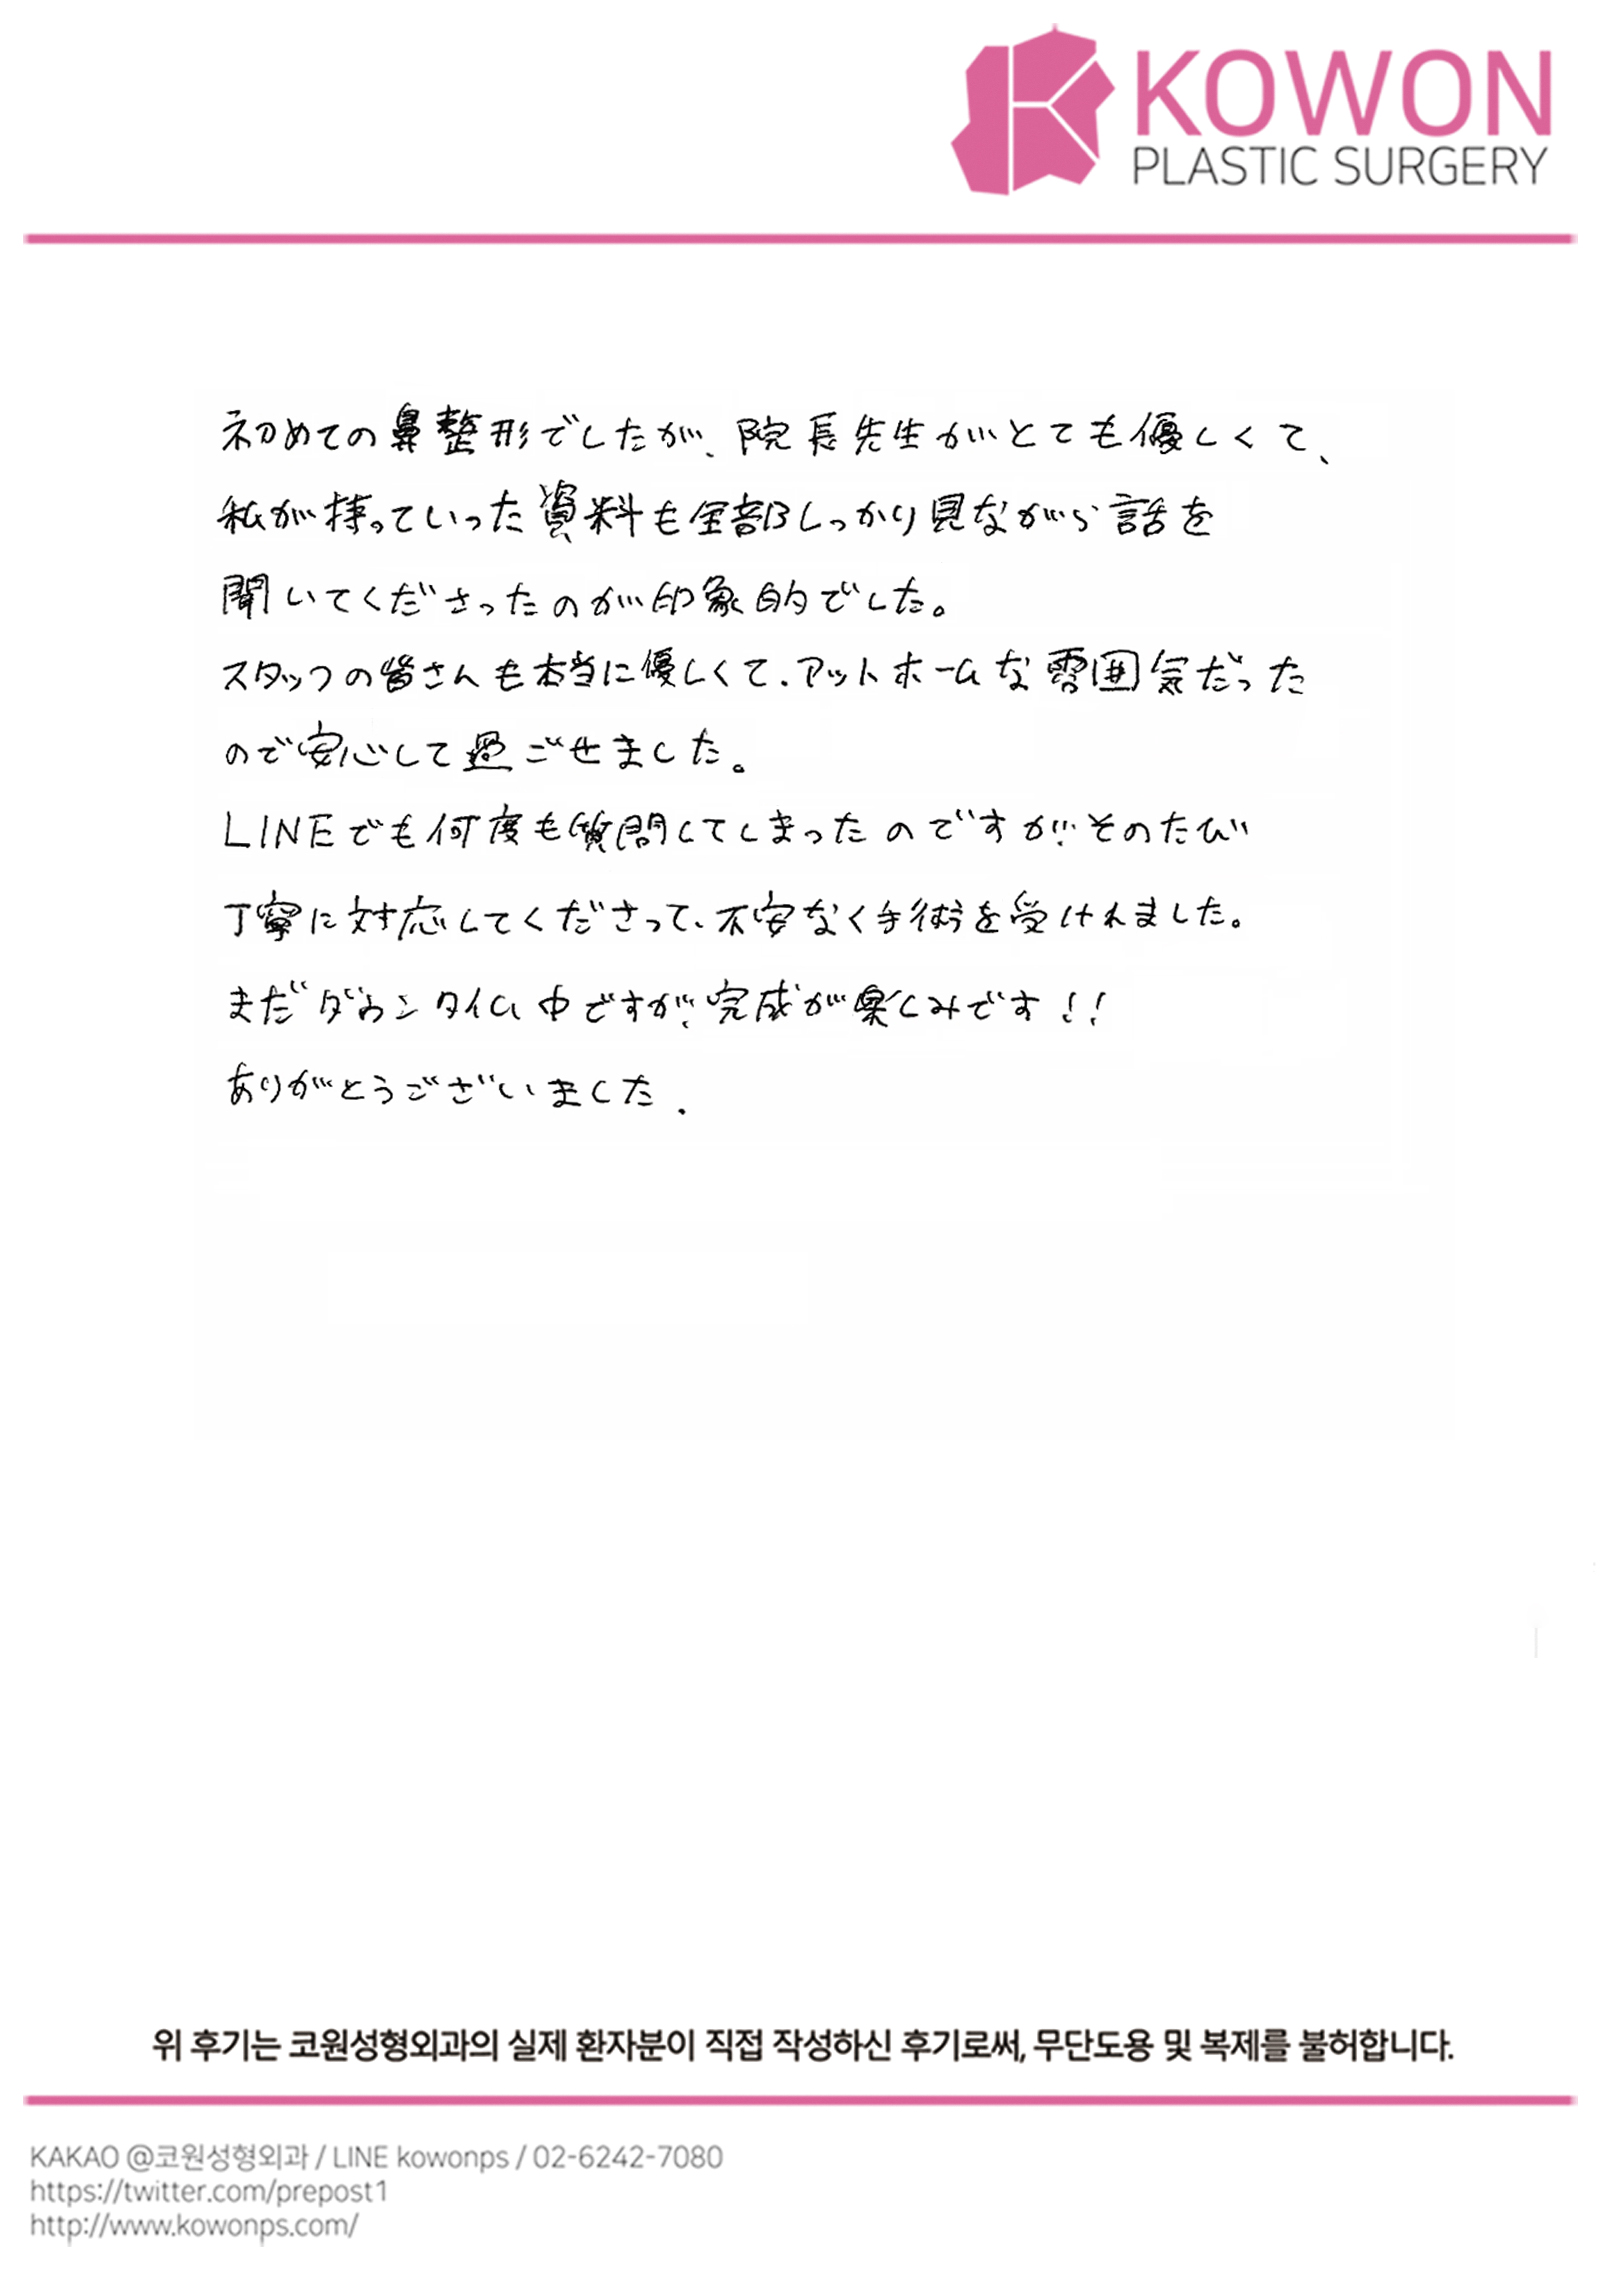 KOWON
PLASTIC SURGERY
初めての鼻整形でしたが、院長先生がとても優しくて、
私が持っていった資料も全部しっかり見ながら話を
聞いてくださったのが印象的でした。
スタッフの皆さんも本当に優しくて、アットホームな雰囲気だった
ので安心して過ごせました。
LINEでも何度も質問してしまったのですが、そのたび
丁寧に対応してくださって、不安なく手術を受けれました。
まだダウンタイム中ですが、完成が楽しみです!!
ありがとうございました.
위 후기는 코원성형외과의 실제 환자분이 직접 작성하신 후기로써, 무단도용 및 복제를 불허합니다.
KAKAO @코원성형외과 / LINE kowonps / 02-6242-7080
https://twitter.com/prepost1
http://www.kowonps.com/